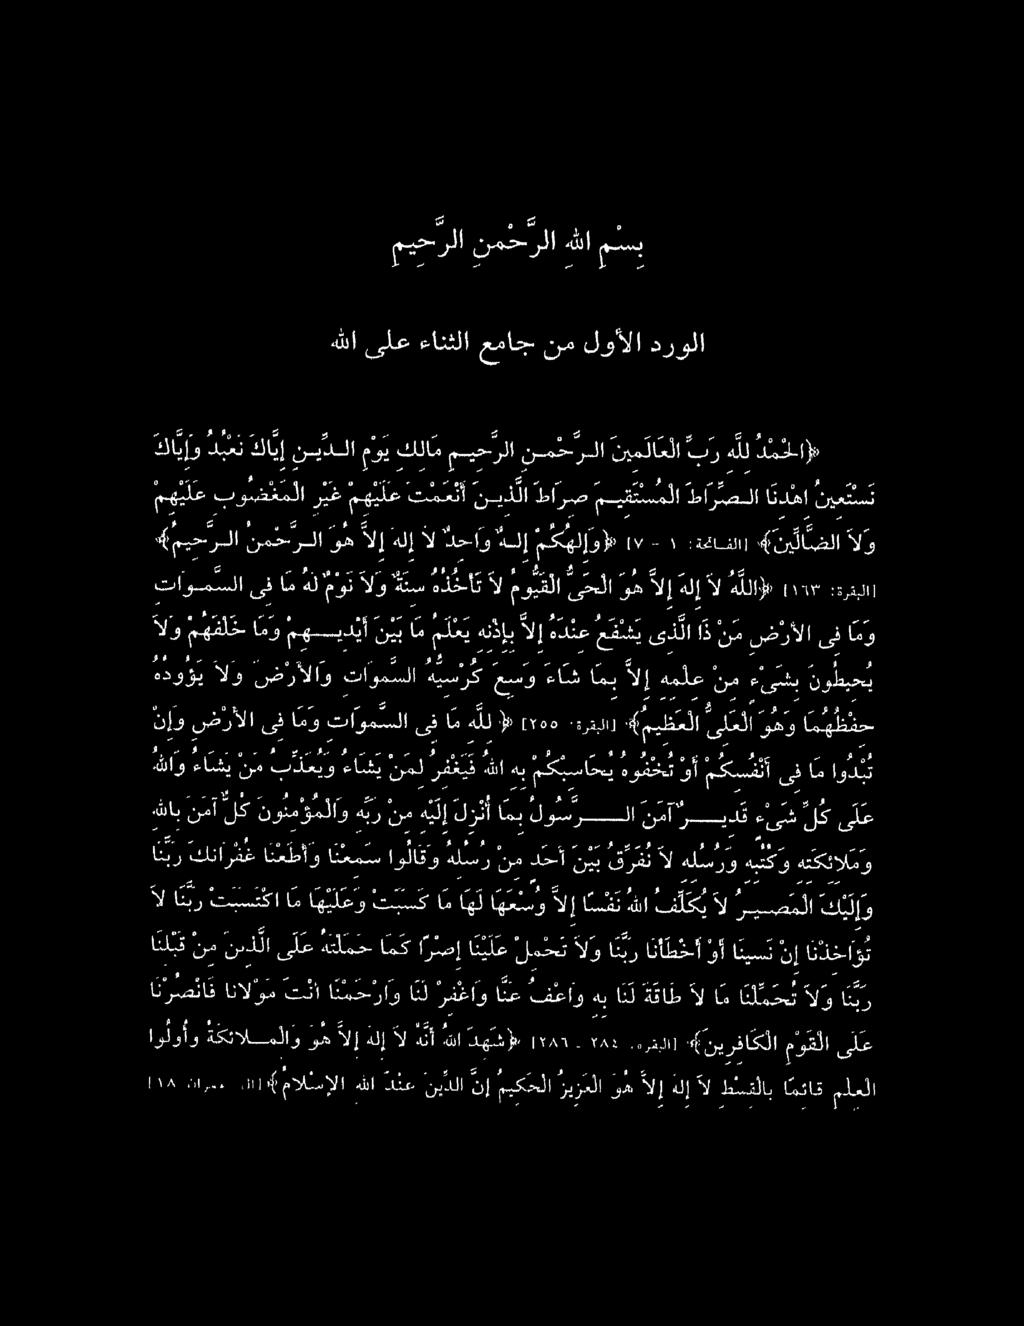 بِسْمِ اللهِ الرَّحْمنِ الرَّحِيمِ
الورد الأول من جامع الثناء على الله
﴿الْحَمْدُ للَّهِ رَبِّ الْعَالَمِينَ الـرَّحْمـنِ الرَّحِيـمِ مَالِكِ يَوْمِ الـدِّيـنِ إِيَّاكَ نَعْبُدُ وَإِيَّاكَ
نَسْتَعِينُ اهْدِنَا الـصِّرَاطَ الْمُسْتَقِيـمَ صِرَاطَ الَّذِيـنَ أَنْعَمْتَ عَلَيْهِمْ غَيْرِ الْمَغْضُوبِ عَلَيْهِمْ
وَلاَ الضَّالِّينَ﴾ [الفـاتحة: ١ - ٧] ﴿وَإِلهُكُمْ إِلـهٌ وَاحِدٌ لاَ إِلهَ إِلاَّ هُوَ الـرَّحْمنُ الـرَّحِيمُ﴾
[البقرة: ١٦٣] ﴿اللَّهُ لاَ إِلهَ إِلاَّ هُوَ الْحَىُّ الْقَيُّومُ لاَ تَأْخُذُهُ سِنَةٌ وَلاَ نَوْمٌ لَهُ مَا فِى السـموَاتِ
وَمَا فِى الأَرْضِ مَنْ ذَا الَّذِى يَشْفَعُ عِنْدَهُ إِلاَّ بِإِذْنِهِ يَعْلَمُ مَا بَيْنَ أَيْدِيـــهِمْ وَمَا خَلْفَهُمْ وَلاَ
يُحِيطُونَ بِشَىْءٍ مِنْ عِلْمِهِ إِلاَّ بِمَا شَاءَ وَسِعَ كُرْسِيُّهُ السَّموَاتِ وَالأَرْضَ وَلاَ يَؤُودُهُ
حِفْظُهُمَا وَهُوَ الْعَلِىُّ الْعَظِيمُ﴾ [البقرة: ٢٥٥] ﴿ للَّهِ مَا فِى السَّموَاتِ وَمَا فِى الأَرْضِ وَإِنْ
تُبْدُوا مَا فِى أَنْفُسِكُمْ أَوْ تُخْفُوهُ يُحَاسِبْكُمْ بِهِ اللهُ فَيَغْفِرُ لِمَنْ يَشَاءُ وَيُعَذِّبُ مَنْ يَشَاءُ وَاللهُ
عَلَى كُلِّ شَىْءٍ قَدِيـــرٌ آمَنَ الـــرَّسُولُ بِمَا أُنْزِلَ إِلَيْهِ مِنْ رَبِّهِ وَالْمُؤْمِنُونَ كُلٌّ آمَنَ بِاللهِ
وَمَلاَئِكَتِهِ وَكُتُبِهِ وَرُسُلِهِ لاَ نُفَرِّقُ بَيْنَ أَحَدٍ مِنْ رُسُلِهِ وَقَالُوا سَمِعْنَا وَأَطَعْنَا غُفْرَانَكَ رَبَّنَا
وَإِلَيْكَ الْمَصِيـرُ لاَ يُكَلِّفُ اللهُ نَفْسًا إِلاَّ وُسْعَهَا لَهَا مَا كَسَبَتْ وَعَلَيْهَا مَا اكْتَسَبَتْ رَبَّنَا لاَ
تُؤَاخِذْنَا إِنْ نَسِينَا أَوْ أَخْطَأْنَا رَبَّنَا وَلاَ تَحْمِلْ عَلَيْنَا إِصْرًا كَمَا حَمَلْتَهُ عَلَى الَّذِينَ مِنْ قَبْلِنَا
رَبَّنَا وَلاَ تُحَمِّلْنَا مَا لاَ طَاقَةَ لَنَا بِهِ وَاعْفُ عَنَّا وَاغْفِرْ لَنَا وَارْحَمْنَا أَنْتَ مَوْلاَنَا فَانْصُرْنَا
عَلَى الْقَوْمِ الْكَافِرِينَ﴾ [البقرة: ٢٨٤ - ٢٨٦] ﴿شَهِدَ اللهُ أَنَّهُ لاَ إِلهَ إِلاَّ هُوَ وَالْمـلاَئِكَةُ وَأُولُوا
الْعِلْمِ قَائِمًا بِالْقِسْطِ لاَ إِلهَ إِلاَّ هُوَ الْعَزِيزُ الْحَكِيمُ إِنَّ الدِّينَ عِنْدَ اللهِ الإِسْلاَمُ﴾ [آل عمران ١٨